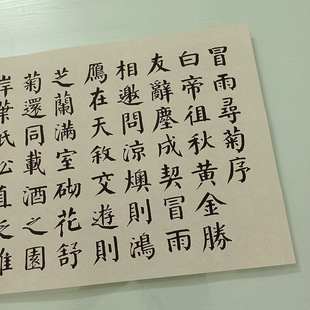 冒雨尋菊序
白帝徂秋黄金勝
友辭塵成契冒雨
相邀問涼燠則鴻
鴈在天敘交遊則
芝蘭滿室砌花舒
菊還同載酒之園
岸葉低松直維